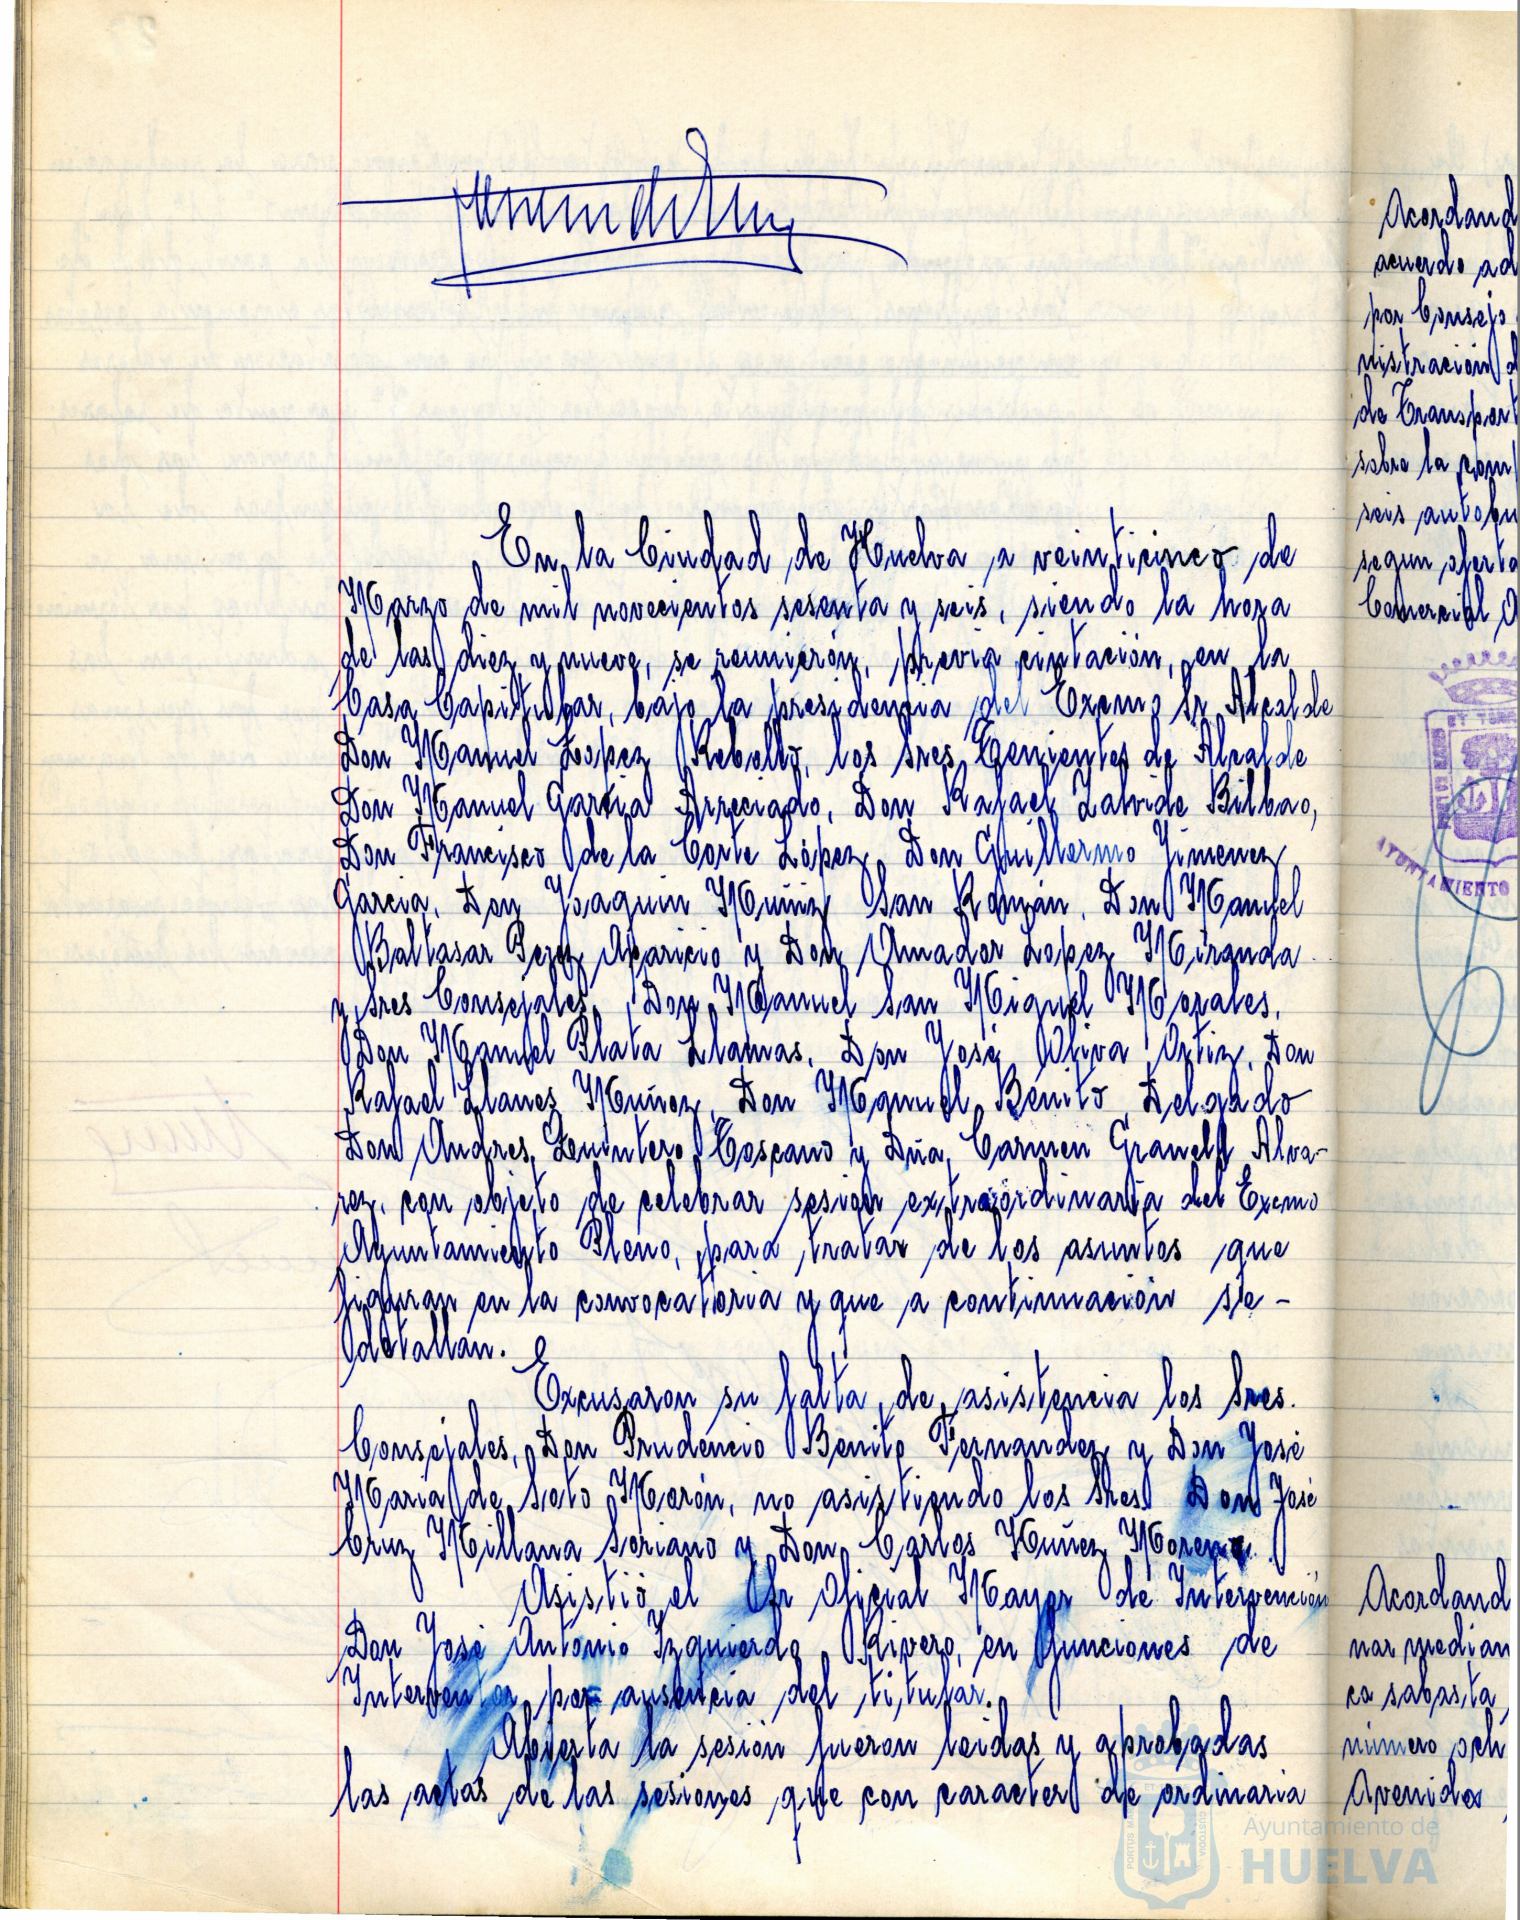 En la Ciudad de Huelva a veinticinco de
Marzo de mil novecientos sesenta y seis, siendo la hora
de las diez y nueve, se reunieron, previa cintación, en la
Casa Capitular, bajo la presidencia del Excmo Sr Alcalde
Don Manuel López Rebollo, los Sres Tenientes de Alcalde
Don Manuel Garcia Arreciado, Don Rafael Zalvide Bilbao,
Don Francisco de la Corte López, Don Guillermo Jimenez
Garcia, Don Joaquin Muñiz San Román, Don Manuel
Baltasar Perez Aparicio y Don Amador Lopez Miranda
y Sres Consejales, Don Manuel San Miguel Morales,
Don Manuel Plata Llamas, Don José Oliva Ortiz, Don
Rafael Llanes Muñoz, Don Manuel Benito Delgado
Don Andres Quintero Toscano y Dña, Carmen Granell Alva-
rez, con objeto de celebrar sesion extraordinaria del Excmo
Ayuntamiento Pleno, para tratar de los asuntos que
figuran en la convocatoria y que a continuación se-
detallan.
Excusaron su falta de asistencia los Sres.
Consejales, Don Prudencio Benito Fernandez y Don José
Maria de Soto Morón, no asistiendo los Sres. Don José
Cruz Millana Soriano y Don Carlos Nuñez Moreno.
Asistió el Sr Oficial Mayor de Intervención
Don José Antonio Izquierdo Rivero, en funciones de
Interventor por ausencia del titular.
Abierta la sesión fueron leidas y aprobadas
las actas de las sesiones que con caracter de ordinaria
Acordand
acuerdo ad
por Consejo
nistración d
de Transport
sobre la com
seis autobu
segun oferta
Comercial
AYUNTAMIENTO
Acordand
nar median
ca subasta
número och
Avenida
Ayuntamiento de
HUELVA